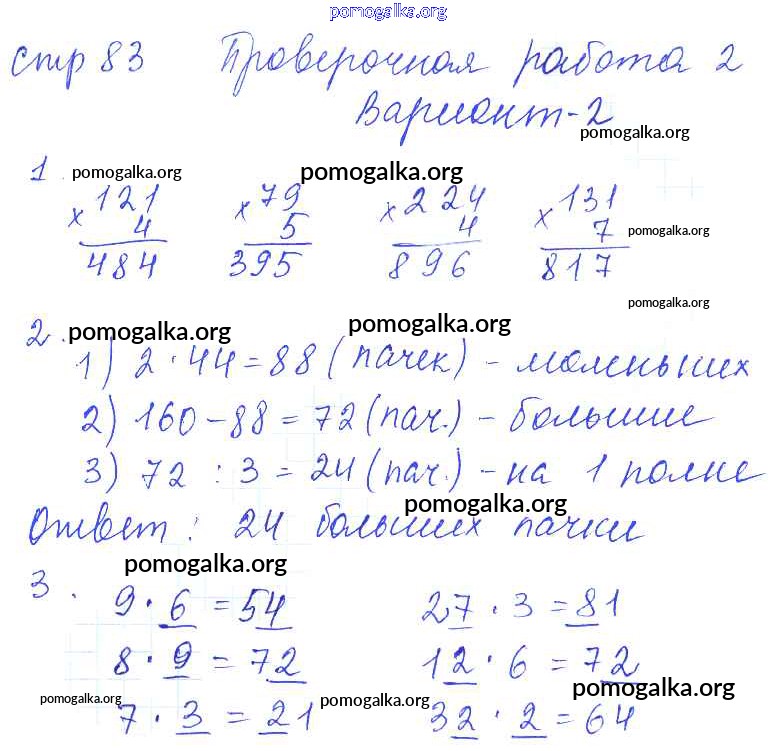 pomogalka.org
стр 83 Проверочная работа 2
Вариант-2
pomogalka.org
1. pomogalka.org pomogalka.org
× 121 × 79 × 224 × 131
4 5 4 7 pomogalka.org
484 395 896 817
pomogalka.org
2. pomogalka.org pomogalka.org
1) 2 · 44 = 88 (пачек) - маленьких
2) 160 - 88 = 72 (пач.) - большие
3) 72 : 3 = 24 (пач.) - на 1 полке
pomogalka.org
Ответ: 24 больших пачки
pomogalka.org
3. 9 · 6 = 54 27 · 3 = 81
8 · 9 = 72 12 · 6 = 72
pomogalka.org pomogalka.org
7 · 3 = 21 32 · 2 = 64